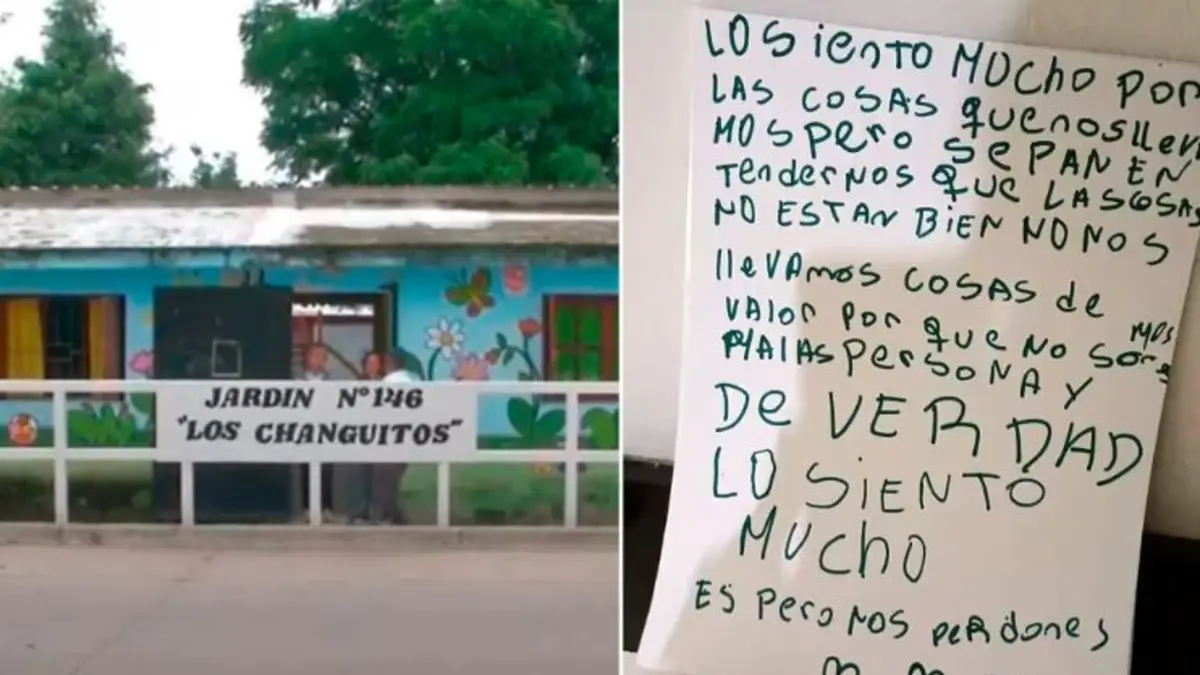 JARDIN Nº 146
"LOS CHANGUITOS"
LO Siento MUCho POR
LAS COSAS quenosllev
MOS Pero SE PAN EN
TenderNOS QUE LASCOSAS
NO ESTAN BiEN NO NOS
llevAmos COSAS de
VALOr POr que NO Sor mos
MALAS PerSONA Y
De VERDAD
LO SiENTO
MUCho
ESPero NOS PERdones